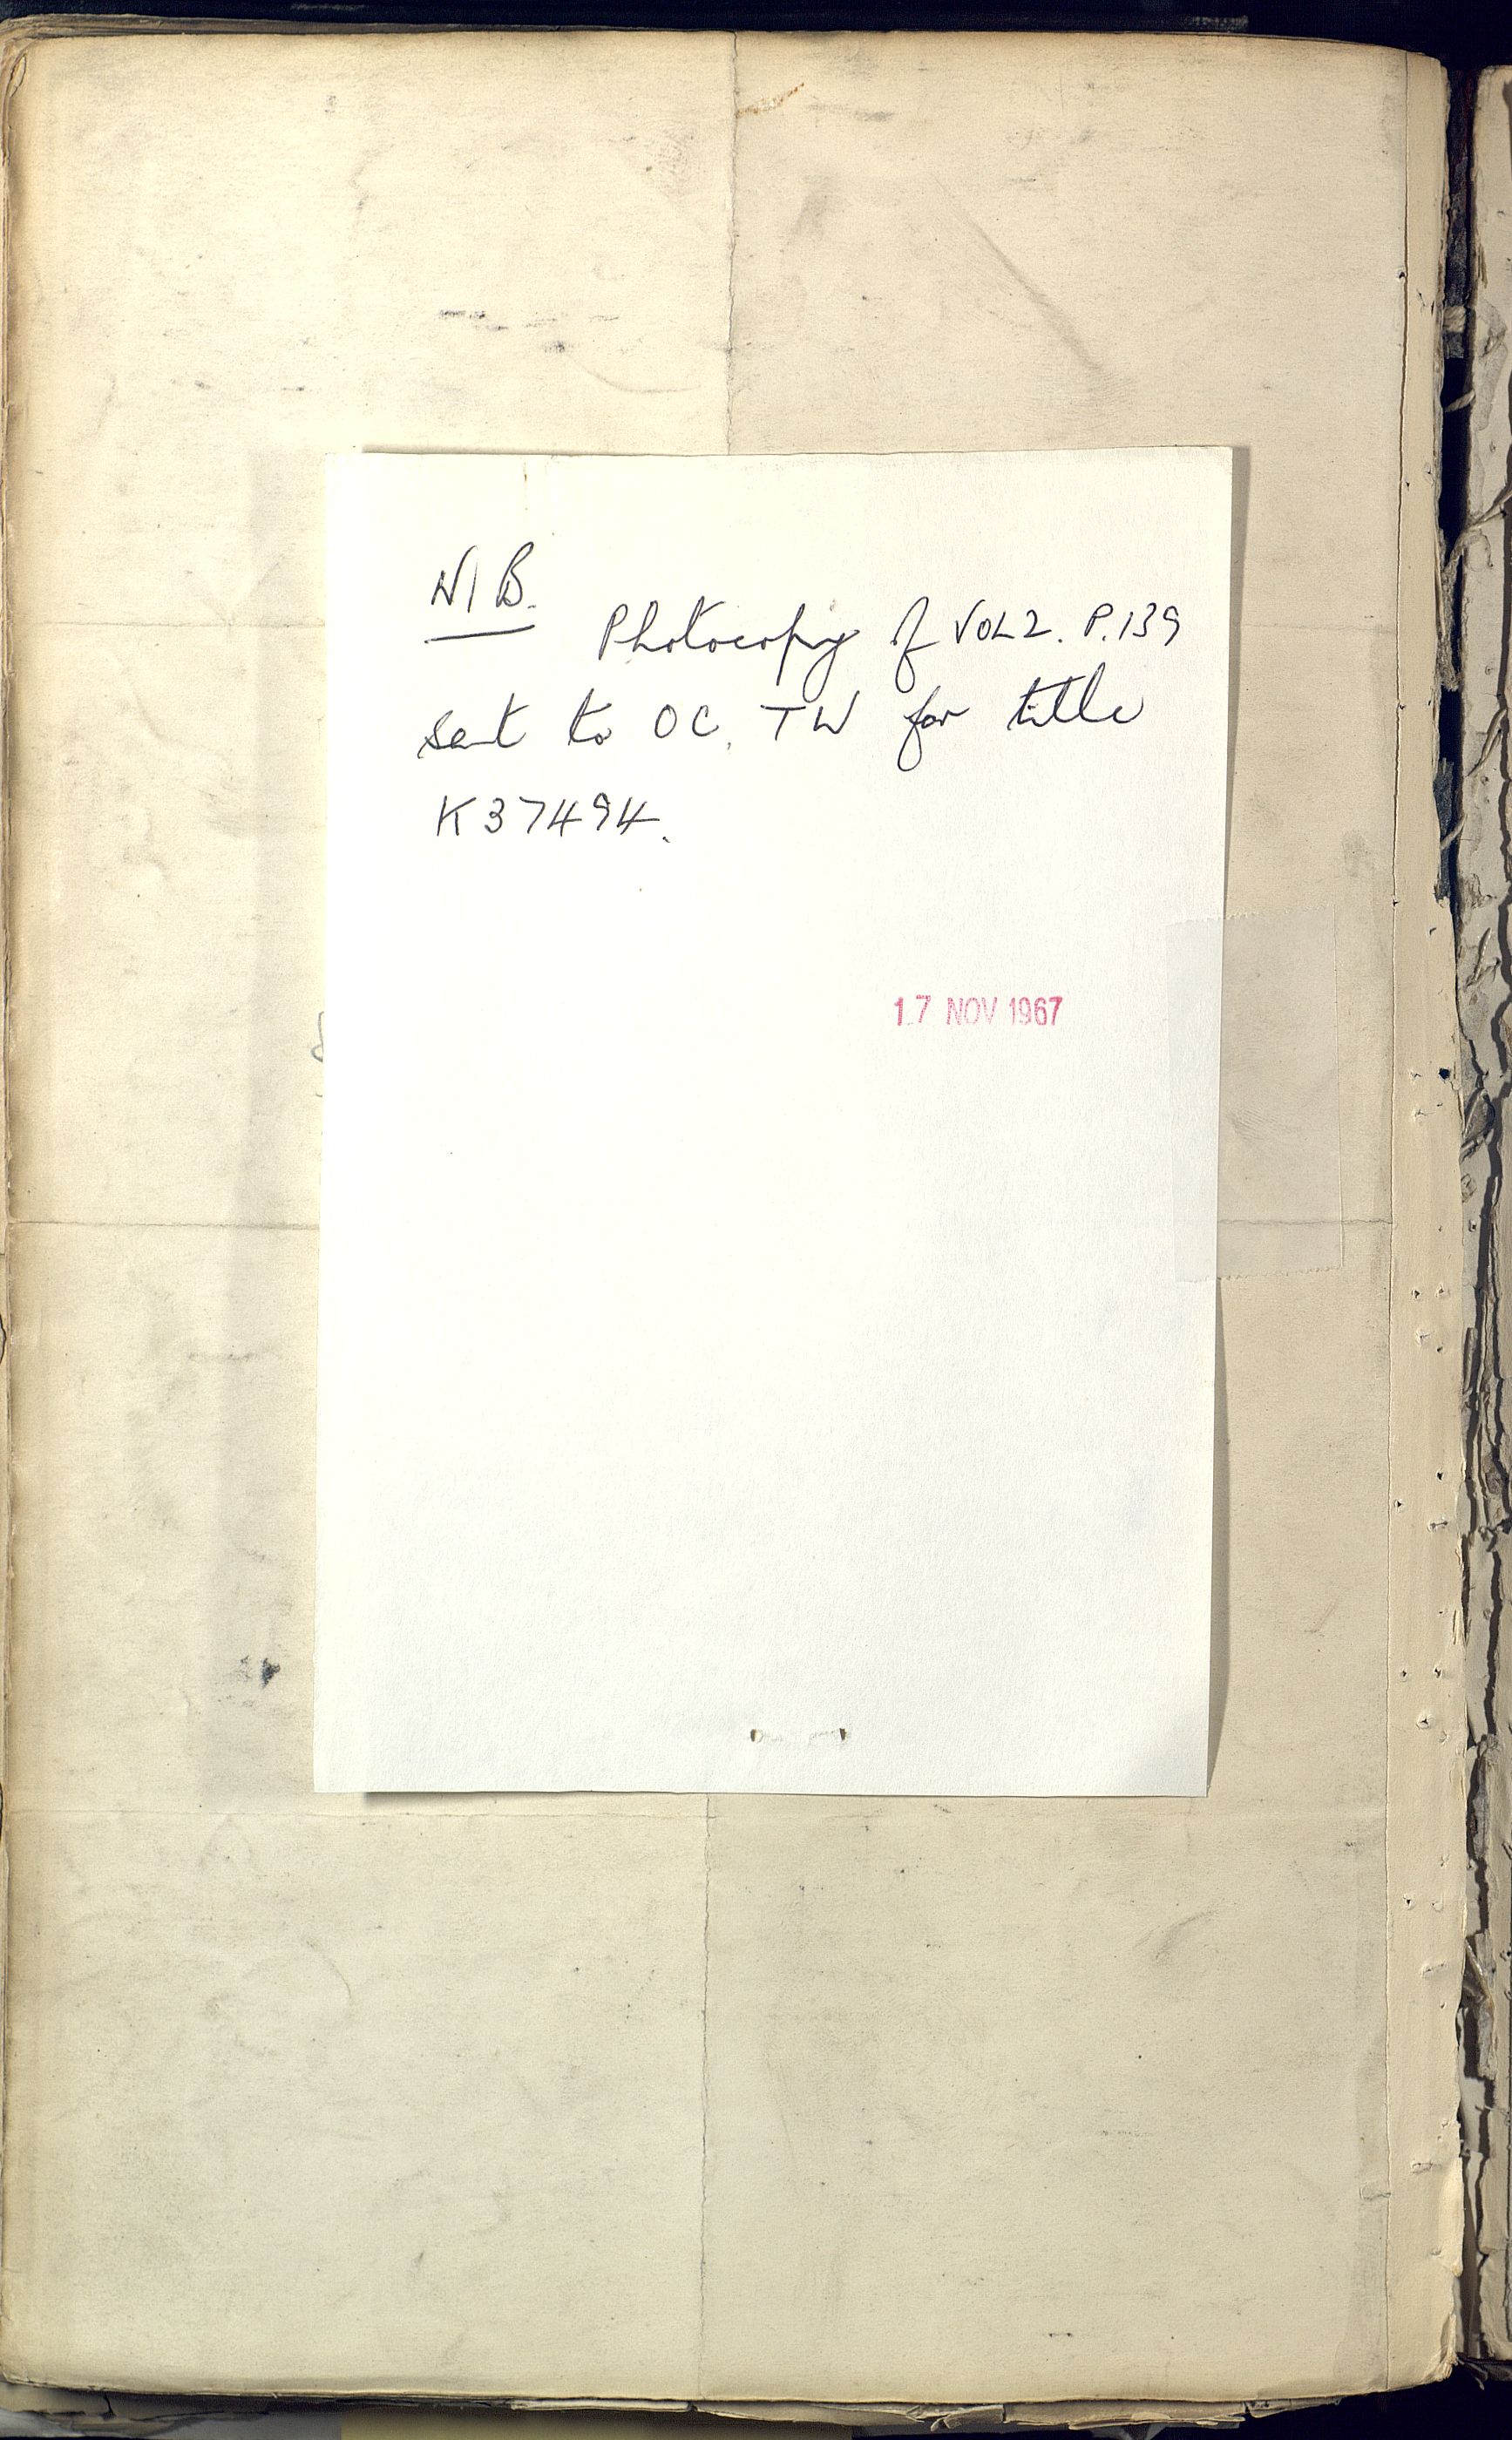 N/B.
Photocopy of VOL 2. P. 139
sent to OC, TW for title
K37494.
17 NOV 1967